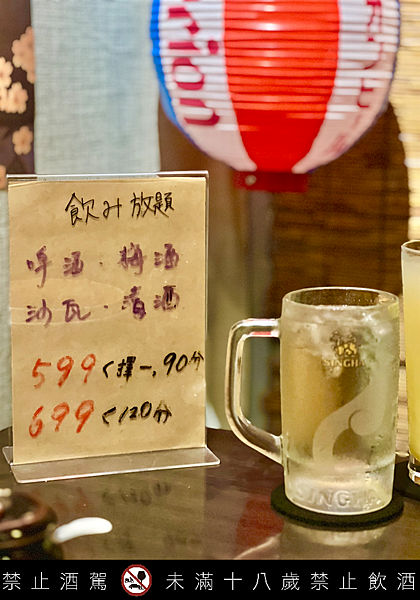 飲み放題
啤酒・梅酒
沙瓦・清酒
599く擇一,90分
699く120分
orion
SINGHA
SINGHA
禁止酒駕 未滿十八歲禁止飲酒